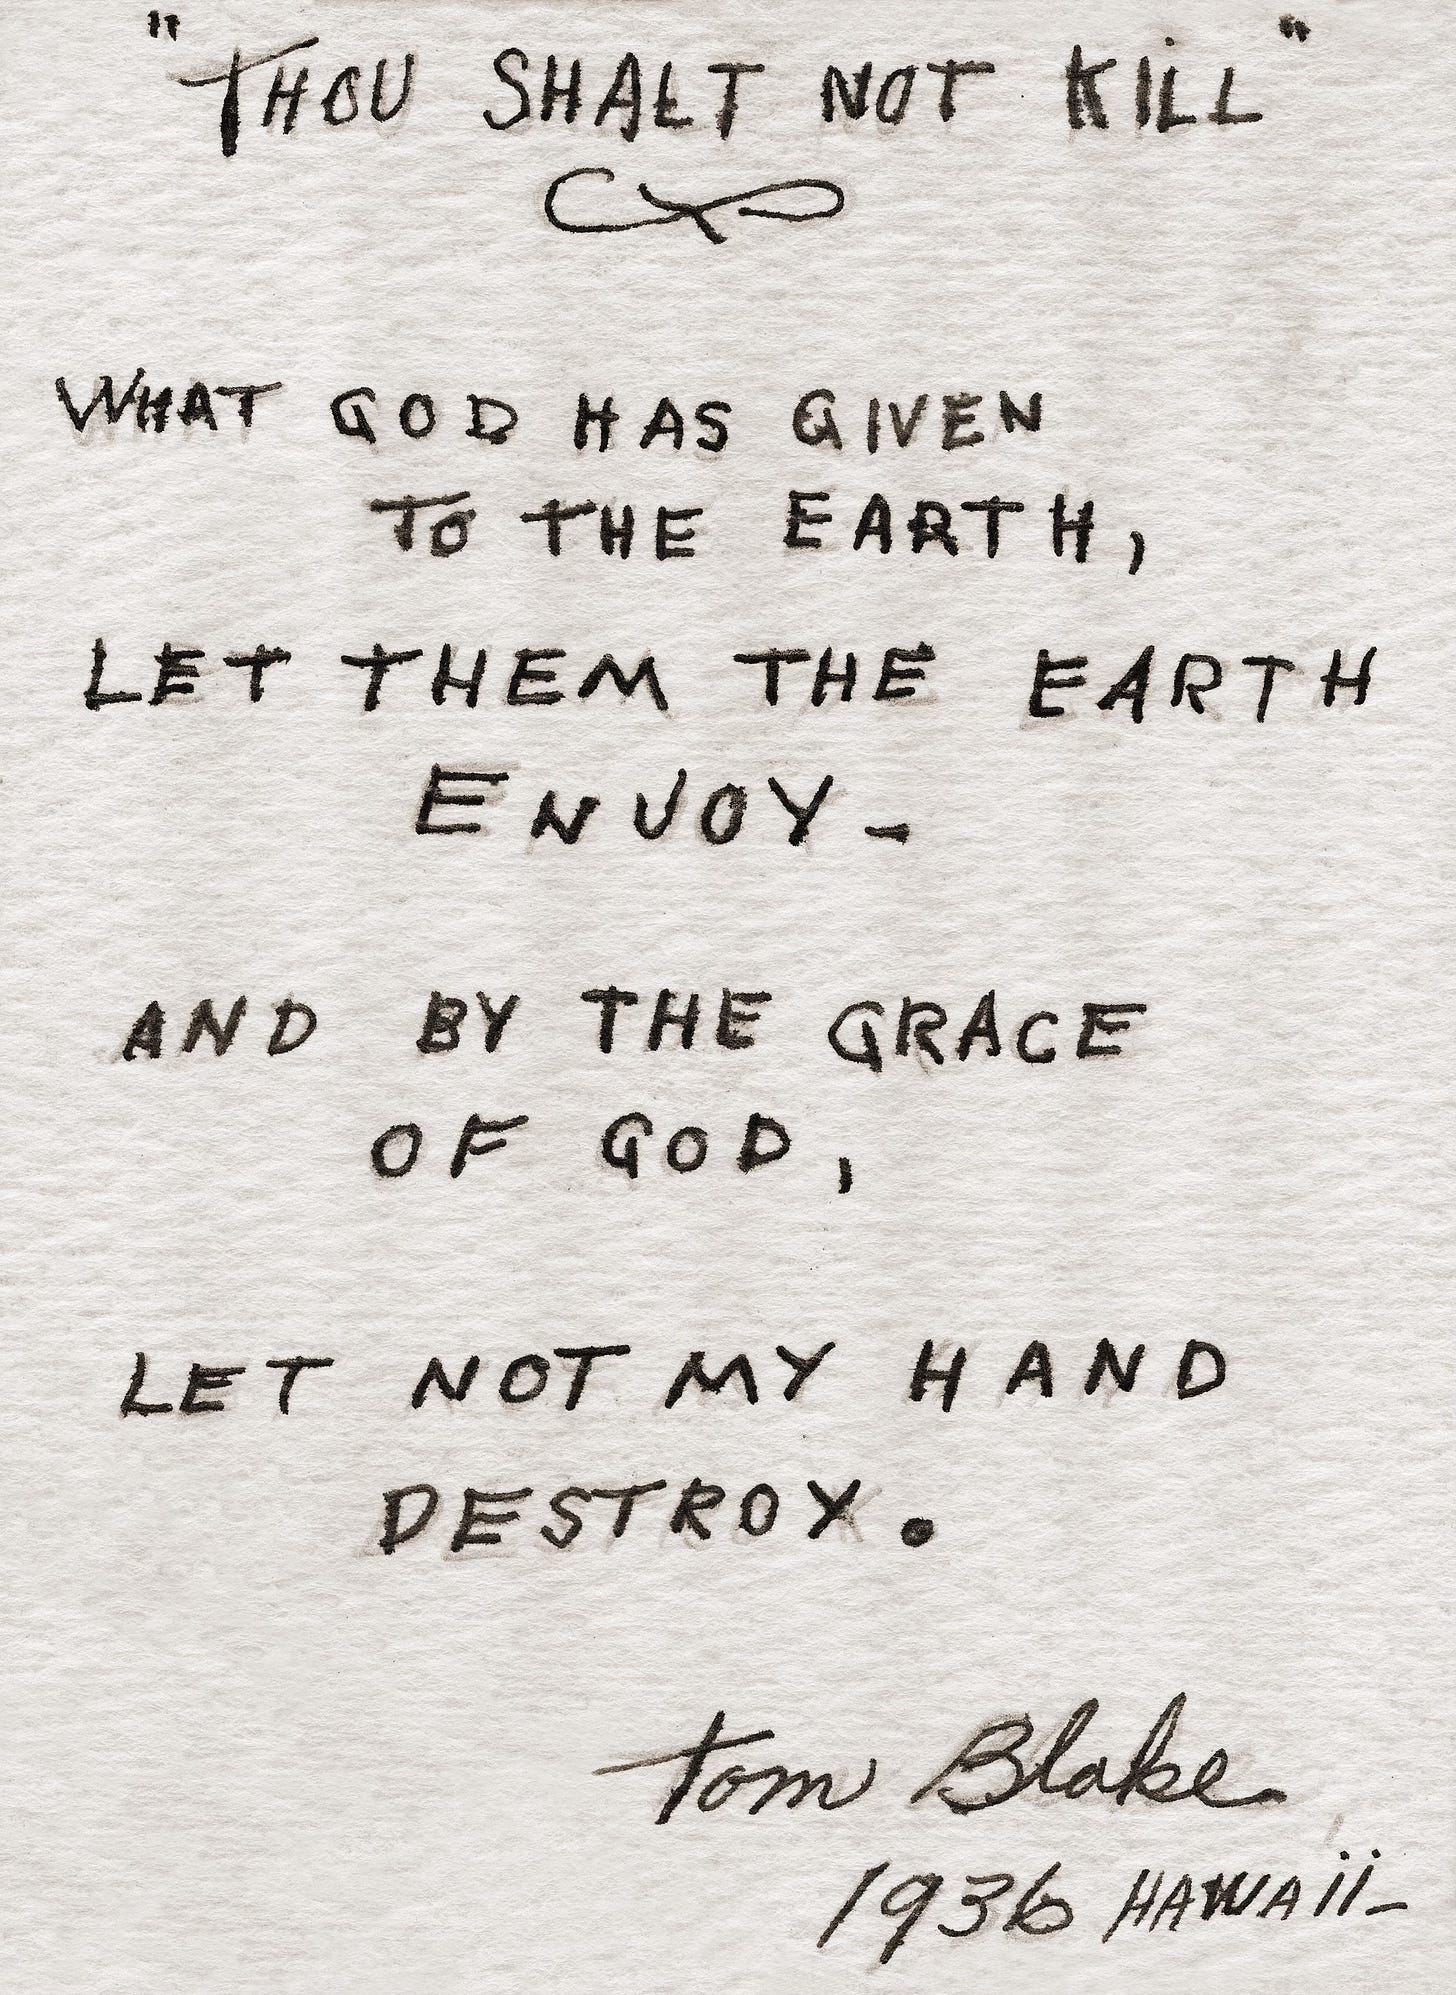 "THOU SHALT NOT KiLL"
WHAT GOD HAS GIVEN
TO THE EARTH,
LET THEM THE EARTH
ENJOY-
AND BY THE GRACE
OF GOD,
LET NOT MY HAND
DESTROY.
Tom Blake
1936 HAWAii-